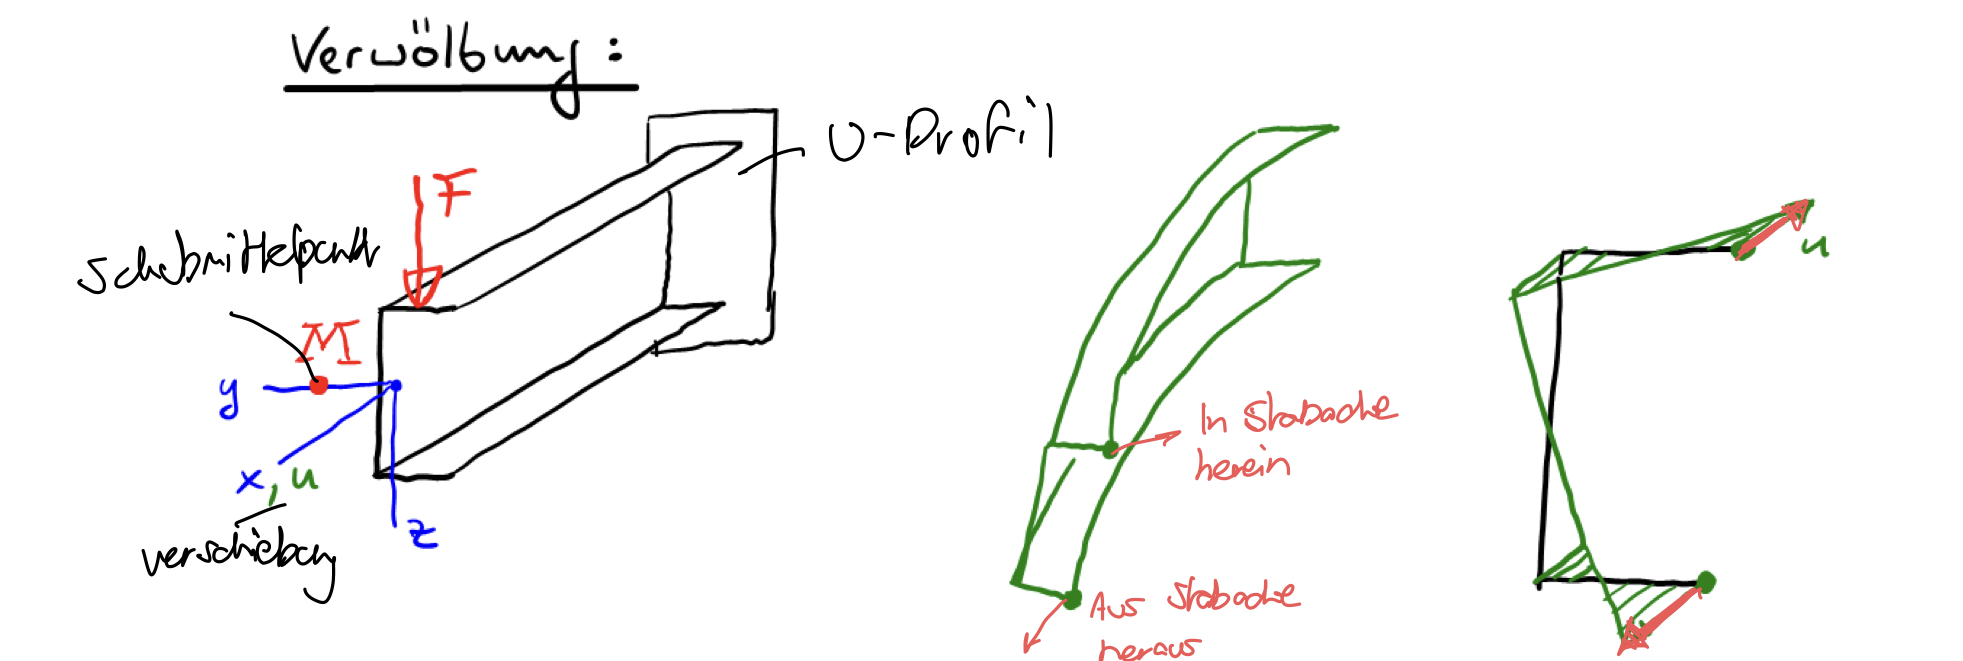 Verwölbung:
U-Profil
F
Schubmittelpunkt
M
y
x, u
z
Verschiebung
In Stabachse
herein
Aus Stabachse
heraus
u